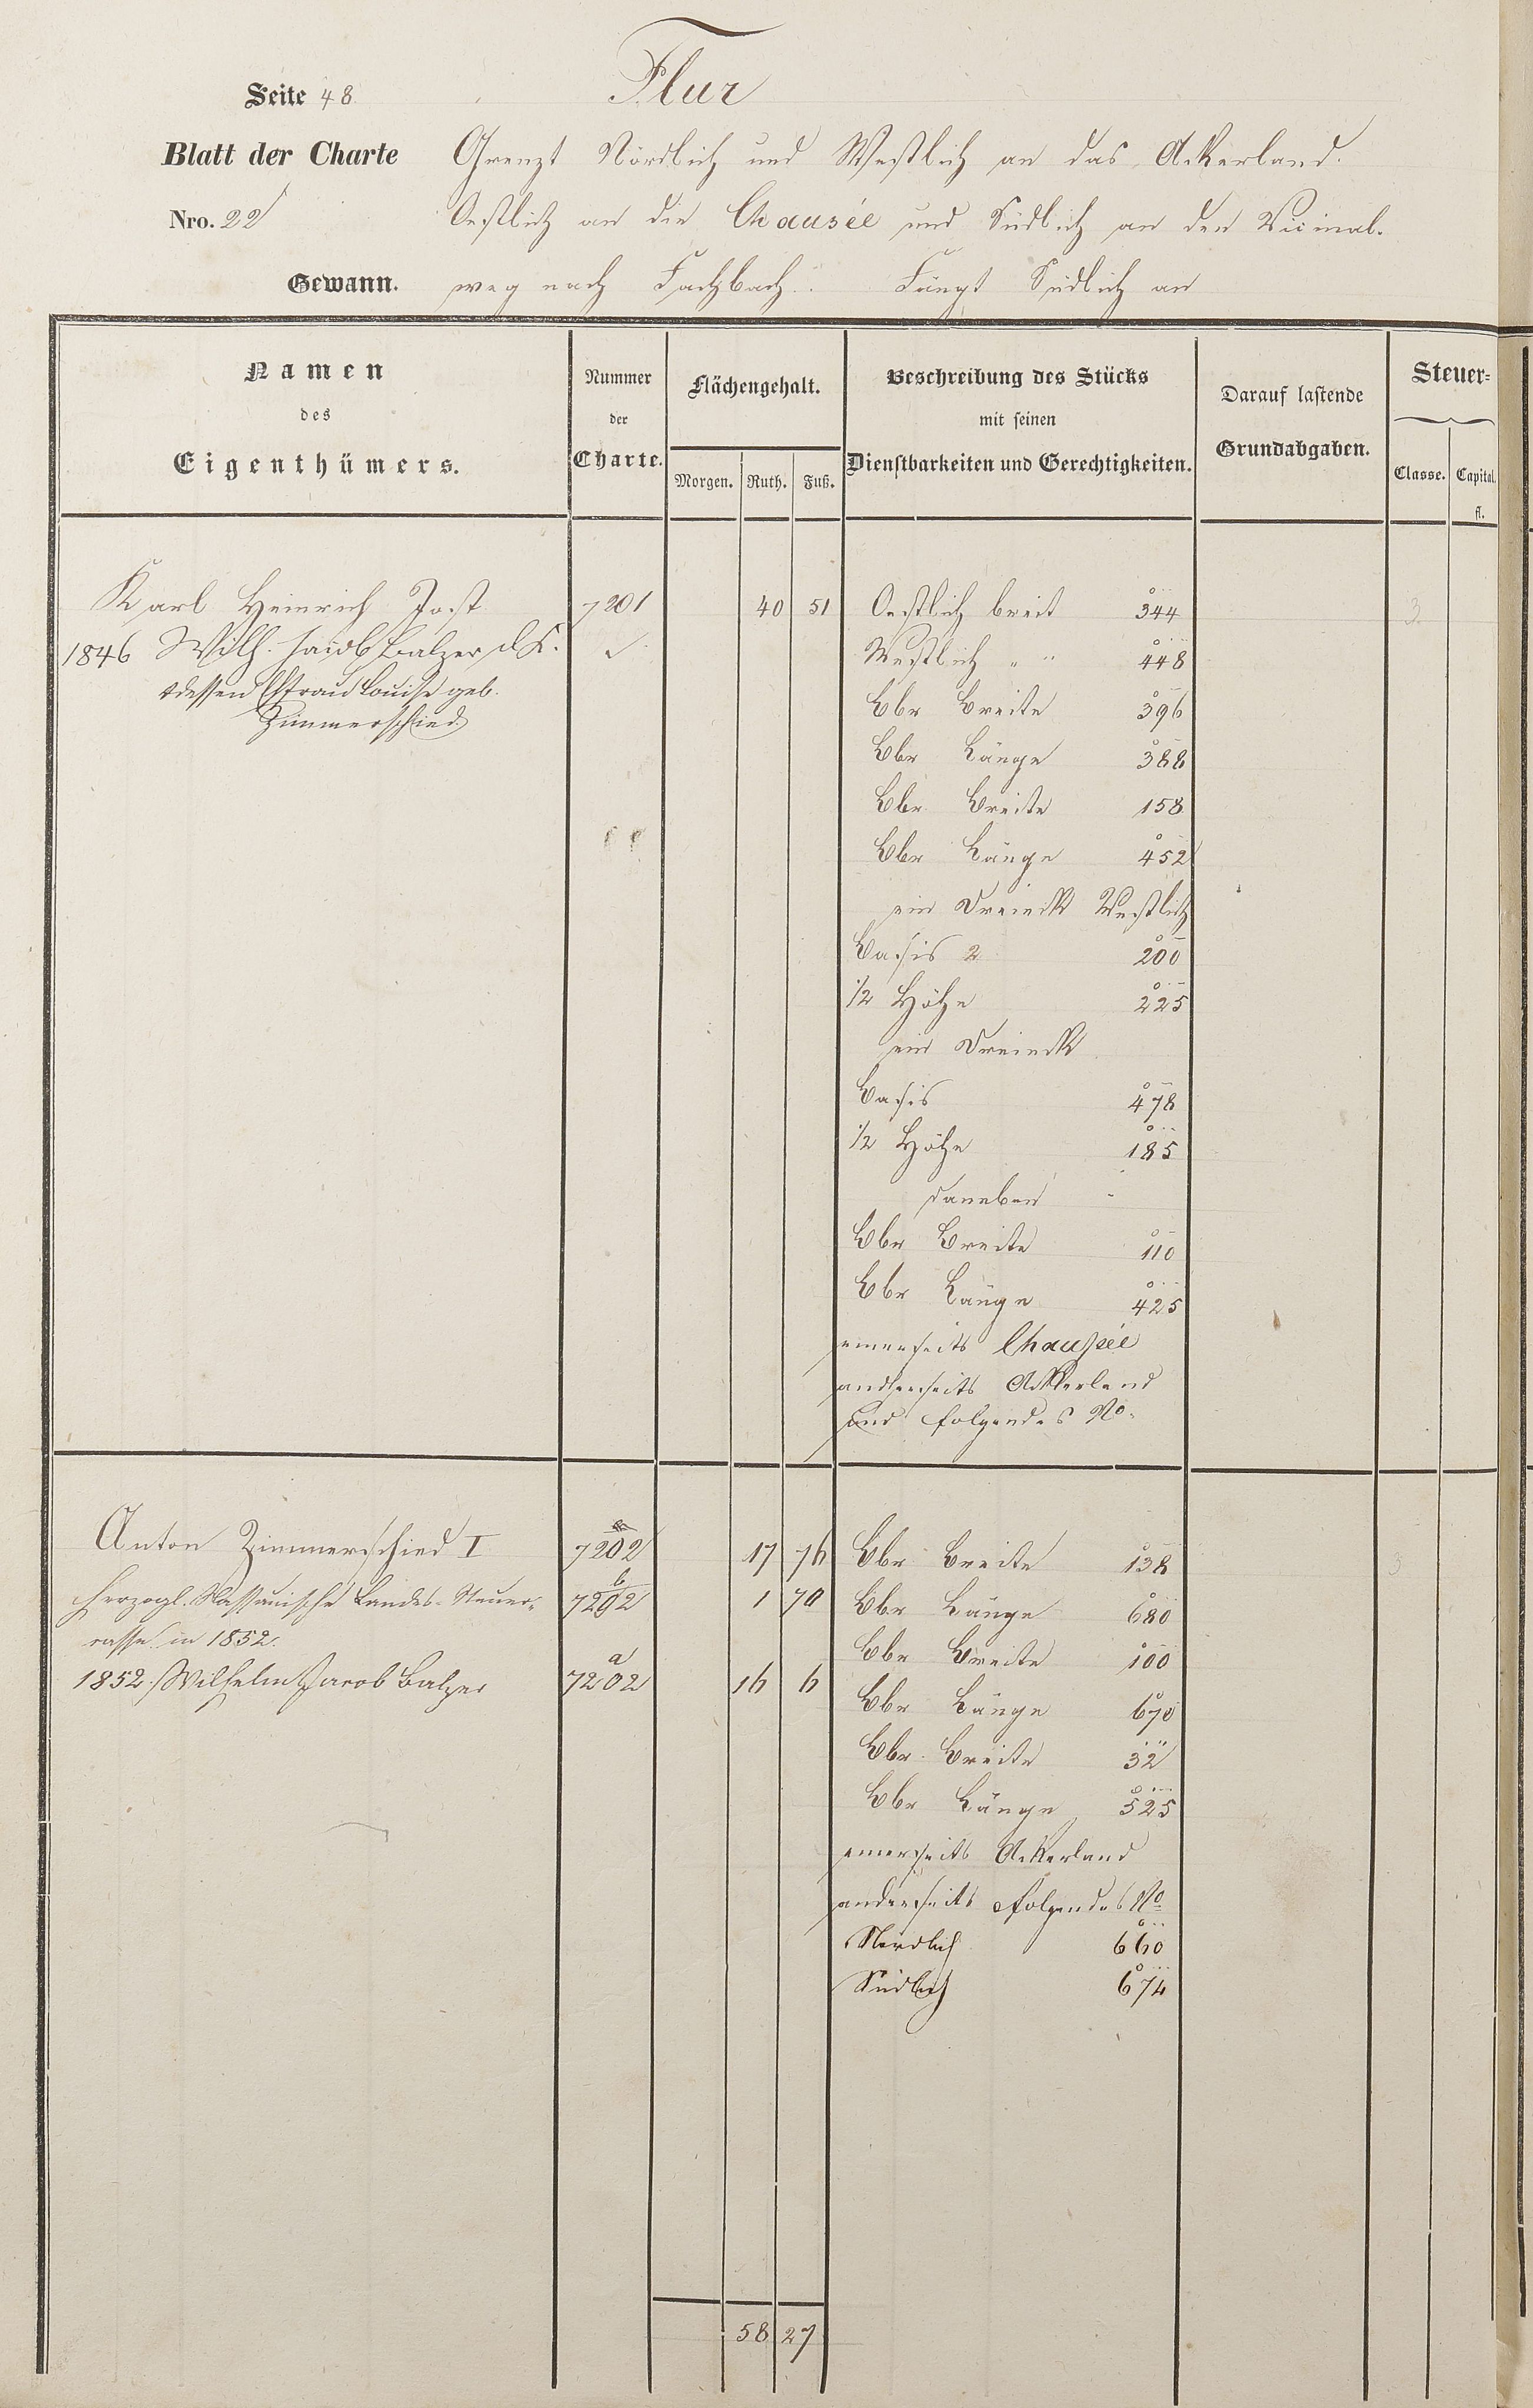 Seite 48
Flur
Blatt der Charte
Grenzt Nördlich und Westlich an das Ackerland.
Nro. 22
Oestlich an die Chausée und Südlich an den Vicinal-
Gewann.
weg nach Fachbach. Fängt Südlich an
Namen
des
Eigenthümers.
Nummer
der
Charte.
Flächengehalt.
Morgen. Ruth. Fuß.
Beschreibung des Stücks
mit seinen
Dienstbarkeiten und Gerechtigkeiten.
Darauf lastende
Grundabgaben.
Steuer=
Classe. Capital.
fl.
Karl Heinrich Jost 7201 40 51 Oestlich breit 344 3
1846 Wilh. Jacob Balzer Westlich " " 448
+dessen Efrau Louise geb.
Zimmerschied
Obr Breite 396
Obr Länge 388
Obr Breite 158
Obr Länge 452
ein Dreieck Westlich
Basis 2 200
1/2 Höhe 225
ein Dreieck
Basis 478
1/2 Höhe 185
daneben
Obr Breite 110
Obr Länge 425
einerseits Chaussée
anderseits Ackerland
und folgendes No.
Anton Zimmerschied I 7202 17 76 Obr Breite 138 3
Herzogl. Nassauische Landes-Steuer- b 7202 1 70 Obr Länge 680
casse in 1852. Obr Breite 100
1852. Wilhelm Jacob Balzer a 7202 16 6
Obr Länge 670
Obr Breite 32
Obr Länge 525
einerseits Ackerland
anderseits folgendes No
Nördlich 660
Südlich 674
58 27